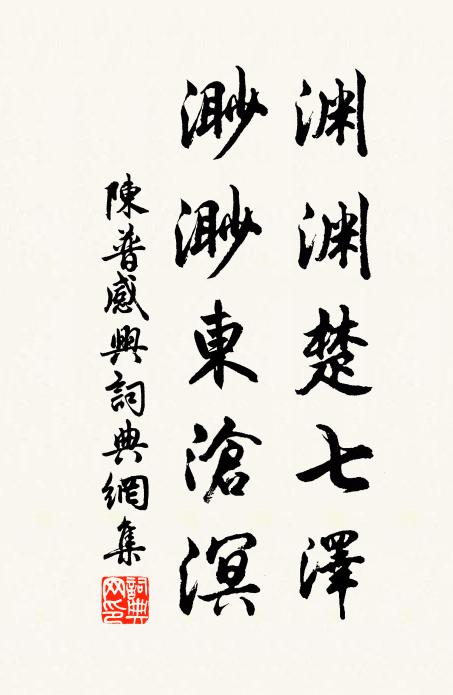 渊渊楚七澤
渺渺東滄溟
陳普感興詞典網集
詞典網印